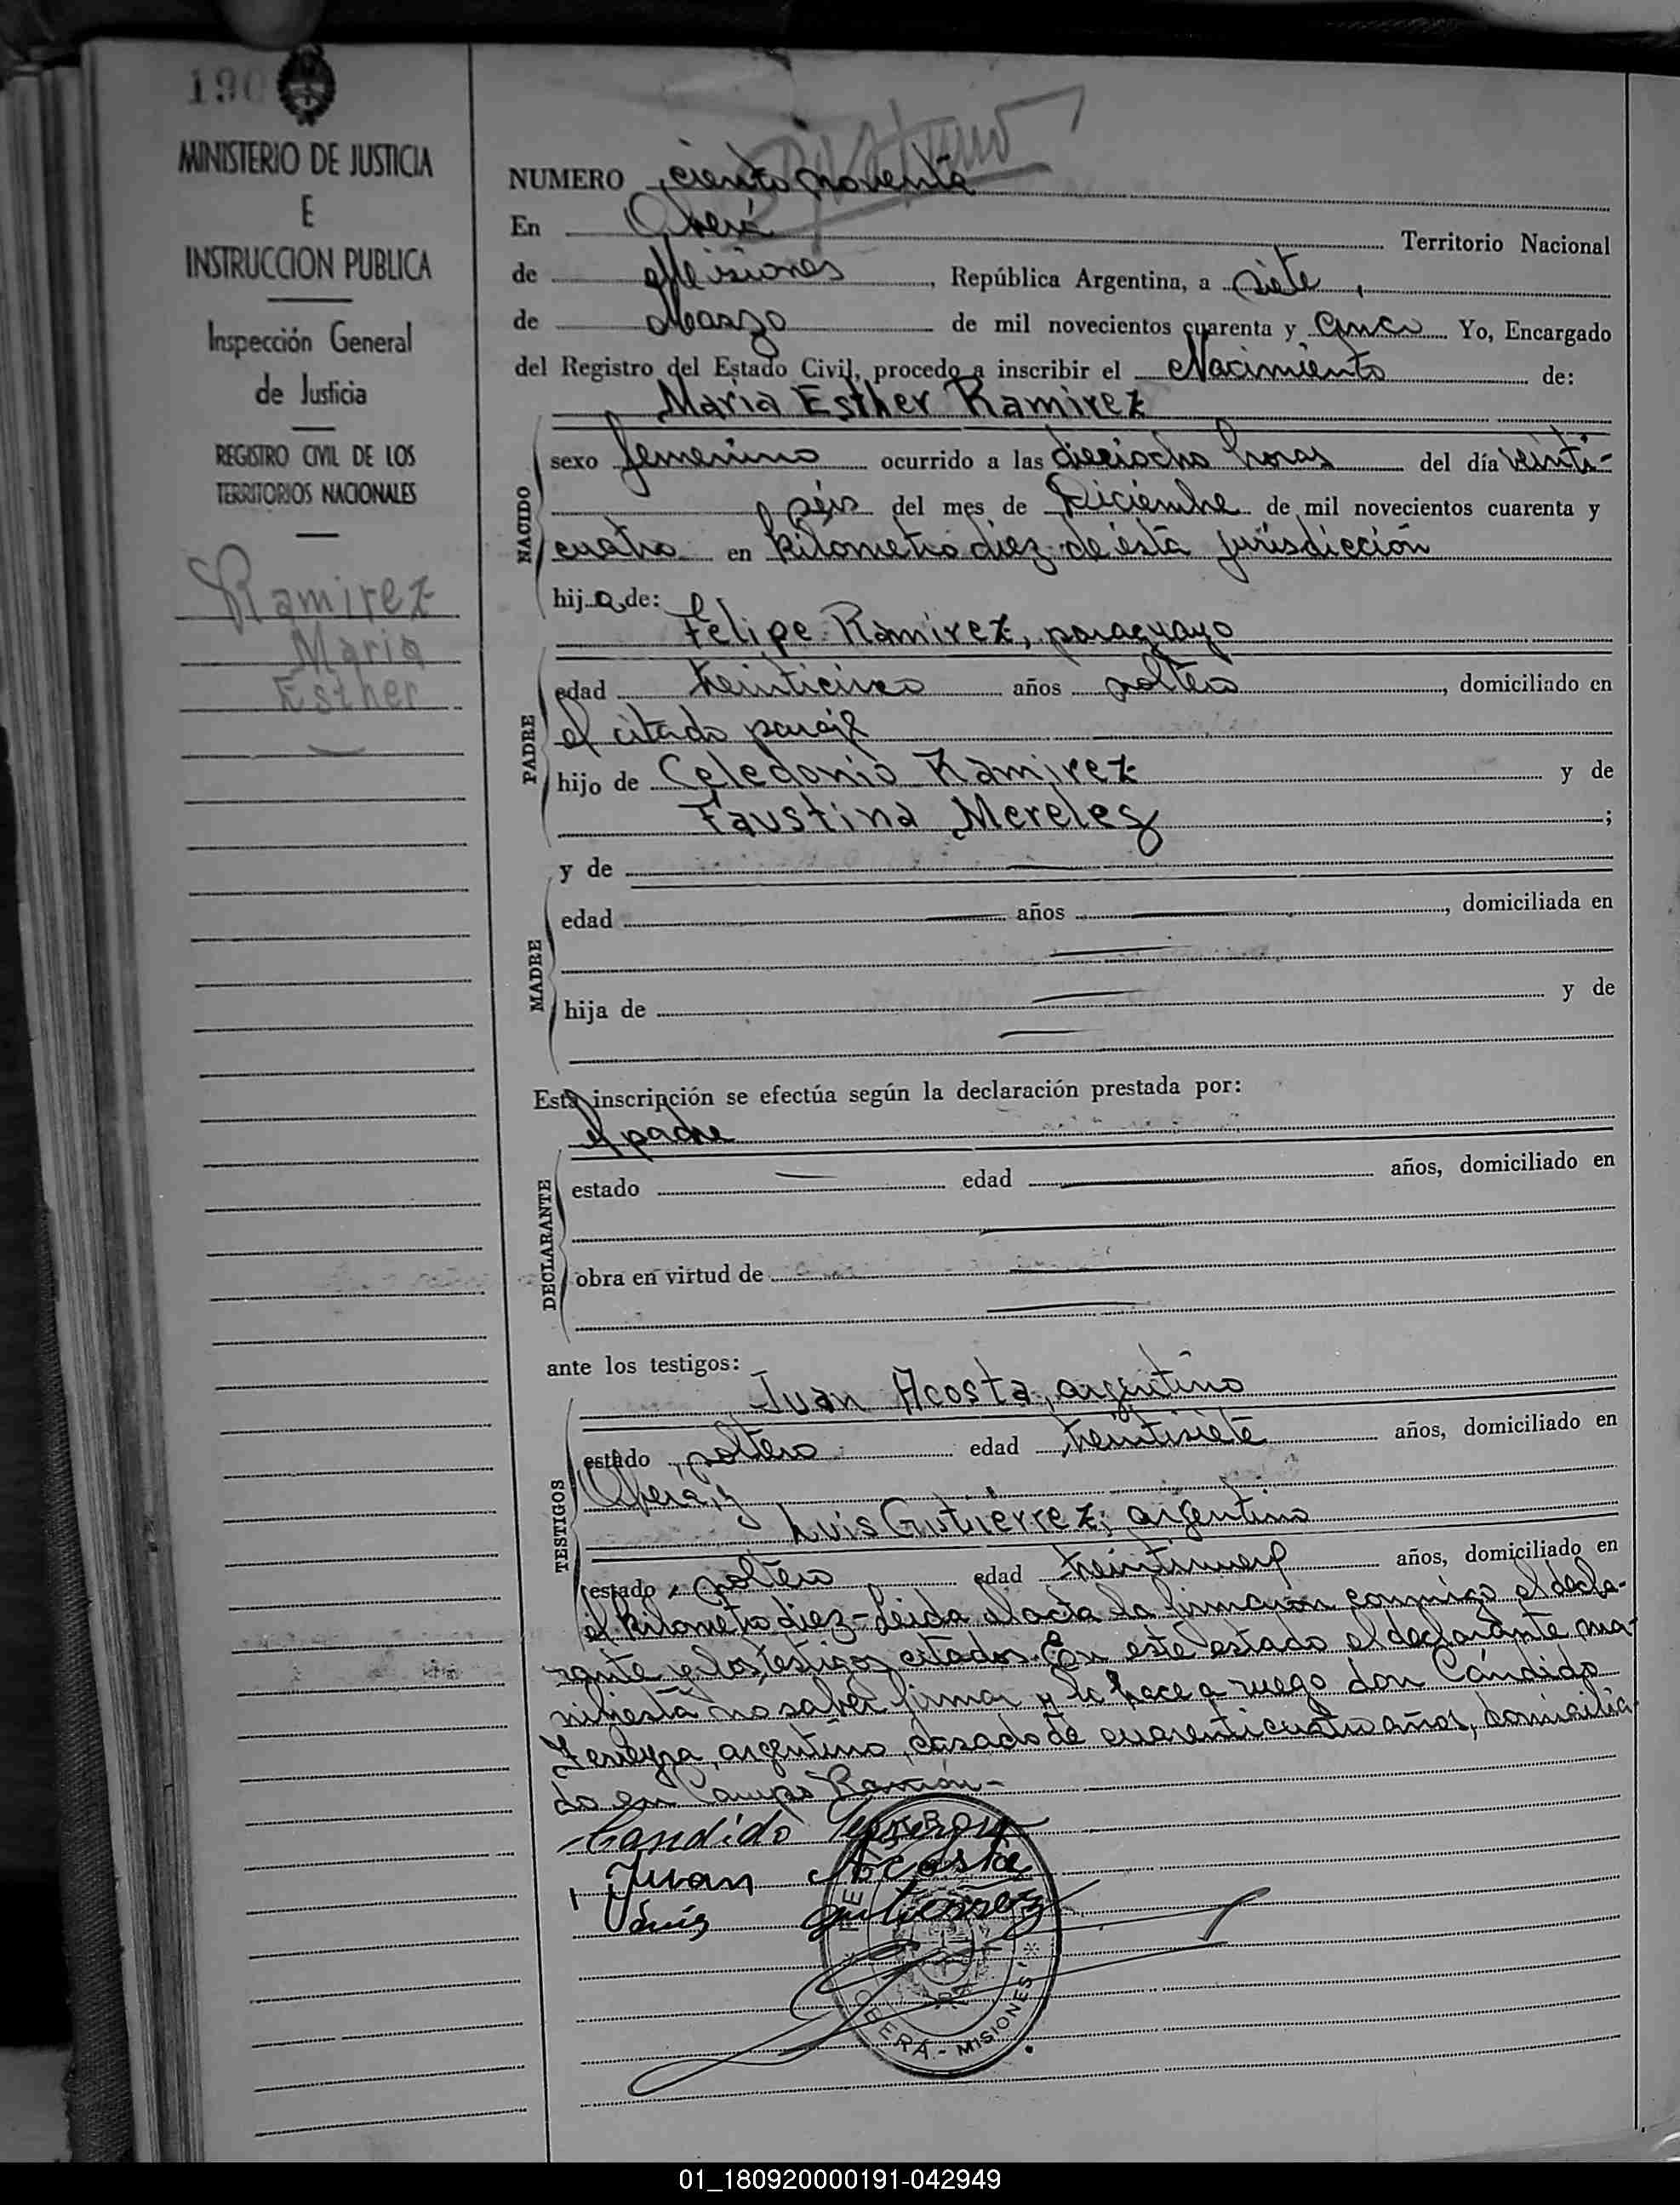 190
MINISTERIO DE JUSTICIA
E
INSTRUCCION PUBLICA
Inspección General
de Justicia
REGISTRO CIVIL DE LOS
TERRITORIOS NACIONALES
Ramirez
Maria
Esther
NUMERO ciento noventa
En Oberá Territorio Nacional
de Misiones, República Argentina, a siete,
de Marzo de mil novecientos cuarenta y cinco Yo, Encargado
del Registro del Estado Civil, procedo a inscribir el Nacimiento de:
Maria Esther Ramirez
NACIDO
sexo femenino ocurrido a las dieciocho horas del día veinti-
seis del mes de Diciembre de mil novecientos cuarenta y
cuatro en kilometro diez de esta jurisdicción
hija de:
Felipe Ramirez, paraguayo
PADRE
edad treinticinco años soltero, domiciliado en
el citado paraje
hijo de Celedonio Ramirez y de
Faustina Mereles;
y de
MADRE
edad años , domiciliada en
hija de y de
Esta inscripción se efectúa según la declaración prestada por:
el padre
DECLARANTE
estado edad años, domiciliado en
obra en virtud de
ante los testigos:
Juan Acosta, argentino
TESTIGOS
estado soltero edad treintisiete años, domiciliado en
Oberá, y
Luis Gutiérrez, argentino
estado soltero edad treintinueve años, domiciliado en
el kilometro diez- Leida el acta la firmaron conmigo el decla-
rante y los testigos citados. En este estado el declarante ma-
nifiesta no saber firmar y lo hace a ruego don Cándido
Ferreyra, argentino, casado de cuarenticuatro años, domicilia
do en Campo Ramón-
Candido
Juan Acosta
Luis Gutierrez
OBERÁ - MISIONES
01_180920000191-042949